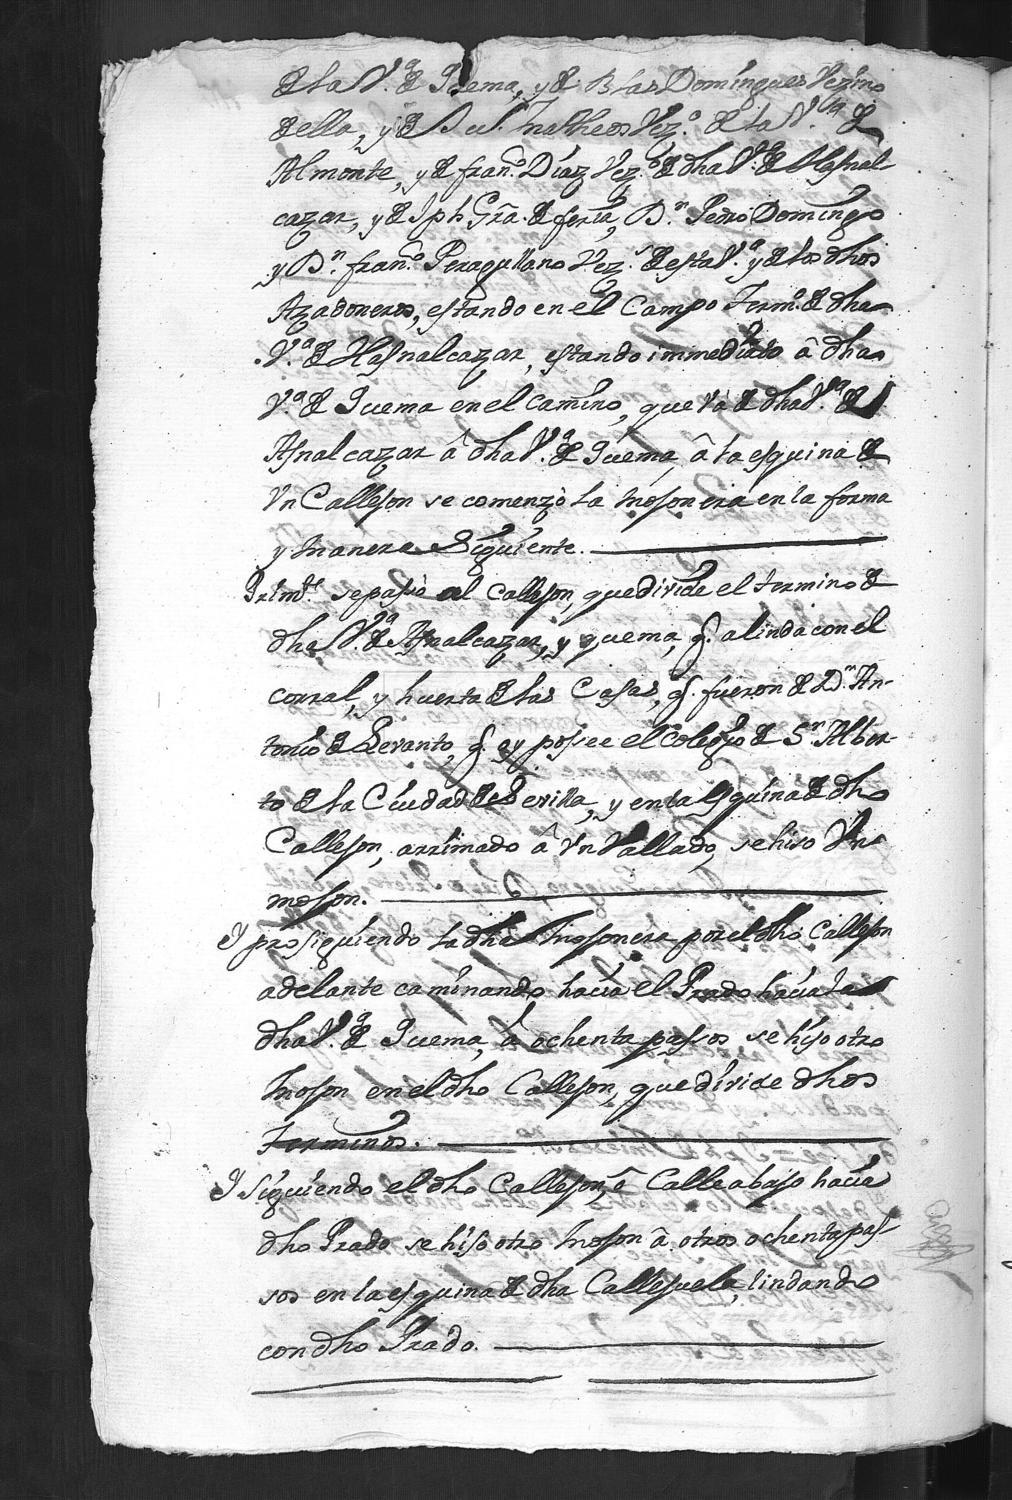 de la V.ª de Quema, y de Blas Domingues Vezino
de ella, y de Matheos Vez.º de la V.ª de
Almonte, y de fran.co Diaz Vez.º de dha V.ª de Hasnal-
cazar, y de Jph Gra. de feria, Dn Pedro Domingo
y Dn fran.co Peragullano Vez.s de esta V.ª y de los dhos
Azadoneros, estando en el Campo Term.º de dha
V.ª de Hasnalcazar, estando immediato â dha
V.ª de Quema en el camino, que va de dha V.ª de
Asnalcazar â dha V.ª de Quema, â la esquina de
Vn Callejon se comenzò la mojonera en la forma
y manera Siguiente.
Primte. se pasò al Callejon, que divide el termino de
dha V.ª de Asnalcazar, y quema, q. alinda con el
corral, y huerta de las Casas, q. fueron de Dn An-
tonio de Levanto, q. oy possee el Colegio de Sn Alber-
to de la Ciudad de Sevilla, y en la esquina de dho
Callejon, arrimado â Vn Vallado, se hiso Vn
mojon.
Y prosiguiendo la dha mojonera por el dho Callejon
adelante caminando hacia el Prado hacia la
dha V.ª de Quema, â ochenta passos se hiso otro
mojon en el dho Callejon, que divide dhos
Terminos.
Y siguiendo el dho Callejon â Calle abajo hacia
dho Prado se hiso otro mojon â otros ochenta pas-
sos en la esquina de dha Callejuela, lindando
con dho Prado.